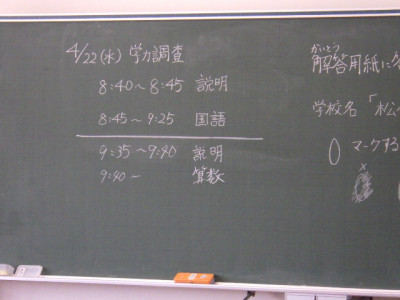 4/22(水) 学力調査
8:40～8:45 説明
8:45～9:25 国語
9:35～9:40 説明
9:40～ 算数
かいとう
解答用紙に
学校名「松
マークする